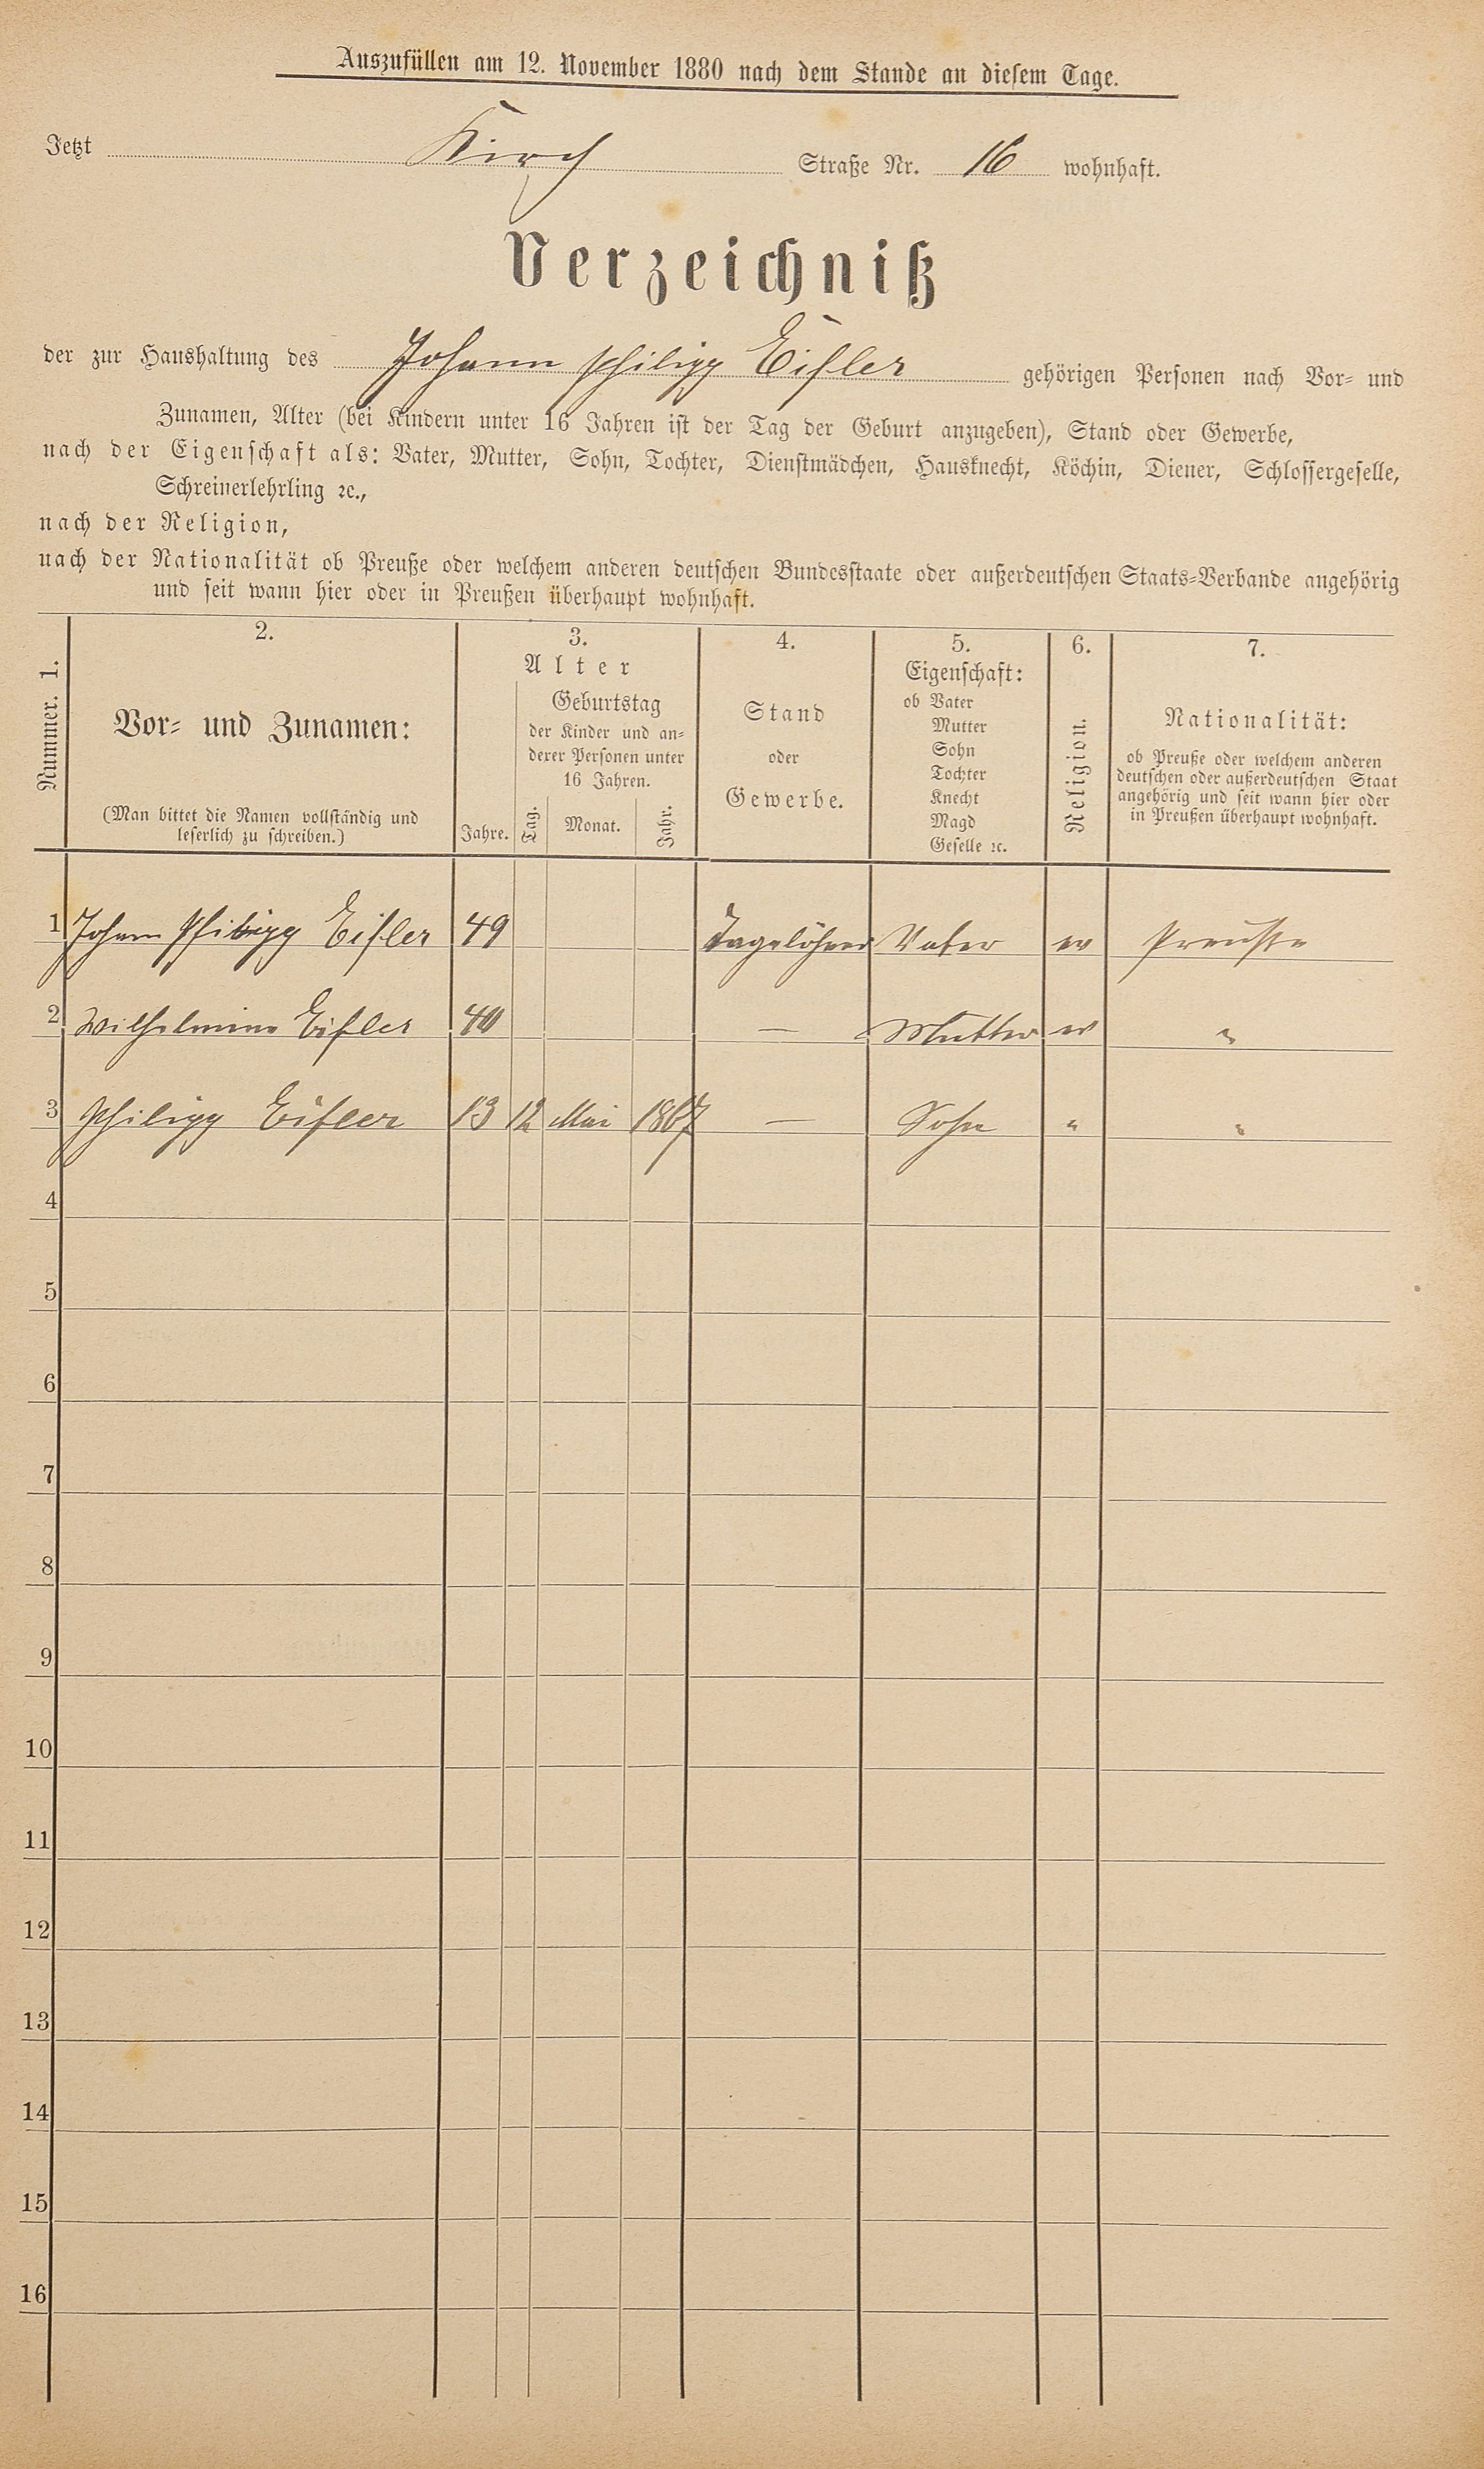 Auszufüllen am 12. November 1880 nach dem Stande an diesem Tage.
Jetzt Kirch Straße Nr. 16 wohnhaft.
Verzeichniß
der zur Haushaltung des Johann Philipp Eifler gehörigen Personen nach Vor- und
Zunamen, Alter (bei Kindern unter 16 Jahren ist der Tag der Geburt anzugeben), Stand oder Gewerbe,
nach der Eigenschaft als: Vater, Mutter, Sohn, Tochter, Dienstmädchen, Hausknecht, Köchin, Diener, Schlossergeselle,
Schreinerlehrling ꝛc.,
nach der Religion,
nach der Nationalität ob Preuße oder welchem anderen deutschen Bundesstaate oder außerdeutschen Staats-Verbande angehörig
und seit wann hier oder in Preußen überhaupt wohnhaft.
Nummer. 1.
2.
Vor- und Zunamen:
(Man bittet die Namen vollständig und
leserlich zu schreiben.)
3.
Alter
Jahre.
Geburtstag
der Kinder und an-
derer Personen unter
16 Jahren.
Tag. Monat. Jahr.
4.
Stand
oder
Gewerbe.
5.
Eigenschaft:
ob Vater
Mutter
Sohn
Tochter
Knecht
Magd
Geselle ꝛc.
6.
Religion.
7.
Nationalität:
ob Preuße oder welchem anderen
deutschen oder außerdeutschen Staat
angehörig und seit wann hier oder
in Preußen überhaupt wohnhaft.
1 Johann Philipp Eifler 49 Tagelöhner Vater ev Preuße
2 Wilhelmine Eifler 40 — Mutter ev "
3 Philipp Eifler 13 12 Mai 1867 — Sohn " "
4
5
6
7
8
9
10
11
12
13
14
15
16